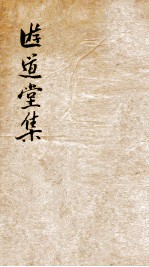 遊道堂集